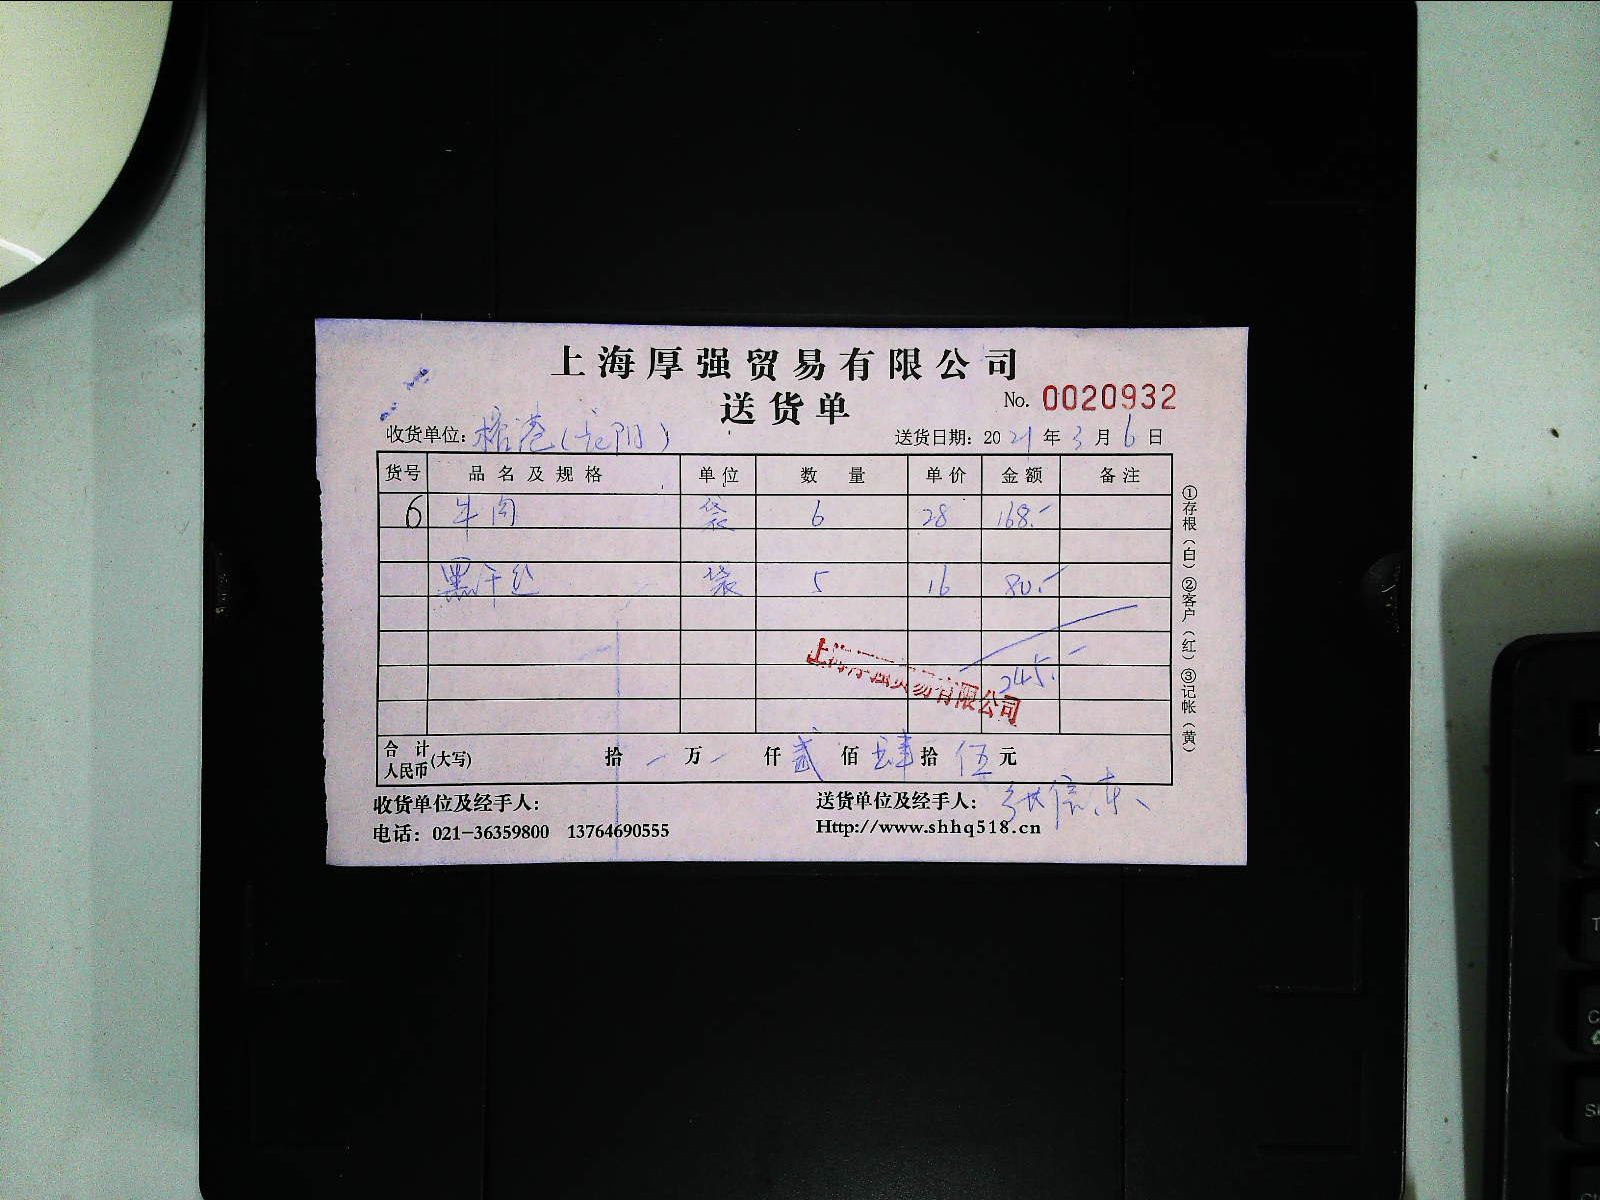 上海厚强贸易有限公司
送货单
No. 0020932
收货单位: 榕港(沈阳) 送货日期: 2021年3月6日
货号 品名及规格 单位 数量 单价 金额 备注
6 牛肉 袋 6 28 168.-
黑汗丝 袋 5 16 80.-
245.-
上海厚强贸易有限公司
合计人民币(大写) 拾 万 仟 贰 佰 肆 拾 伍 元
收货单位及经手人: 送货单位及经手人:
电话: 021-36359800 13764690555 Http://www.shhq518.cn
①存根(白)②客户(红)③记帐(黄)